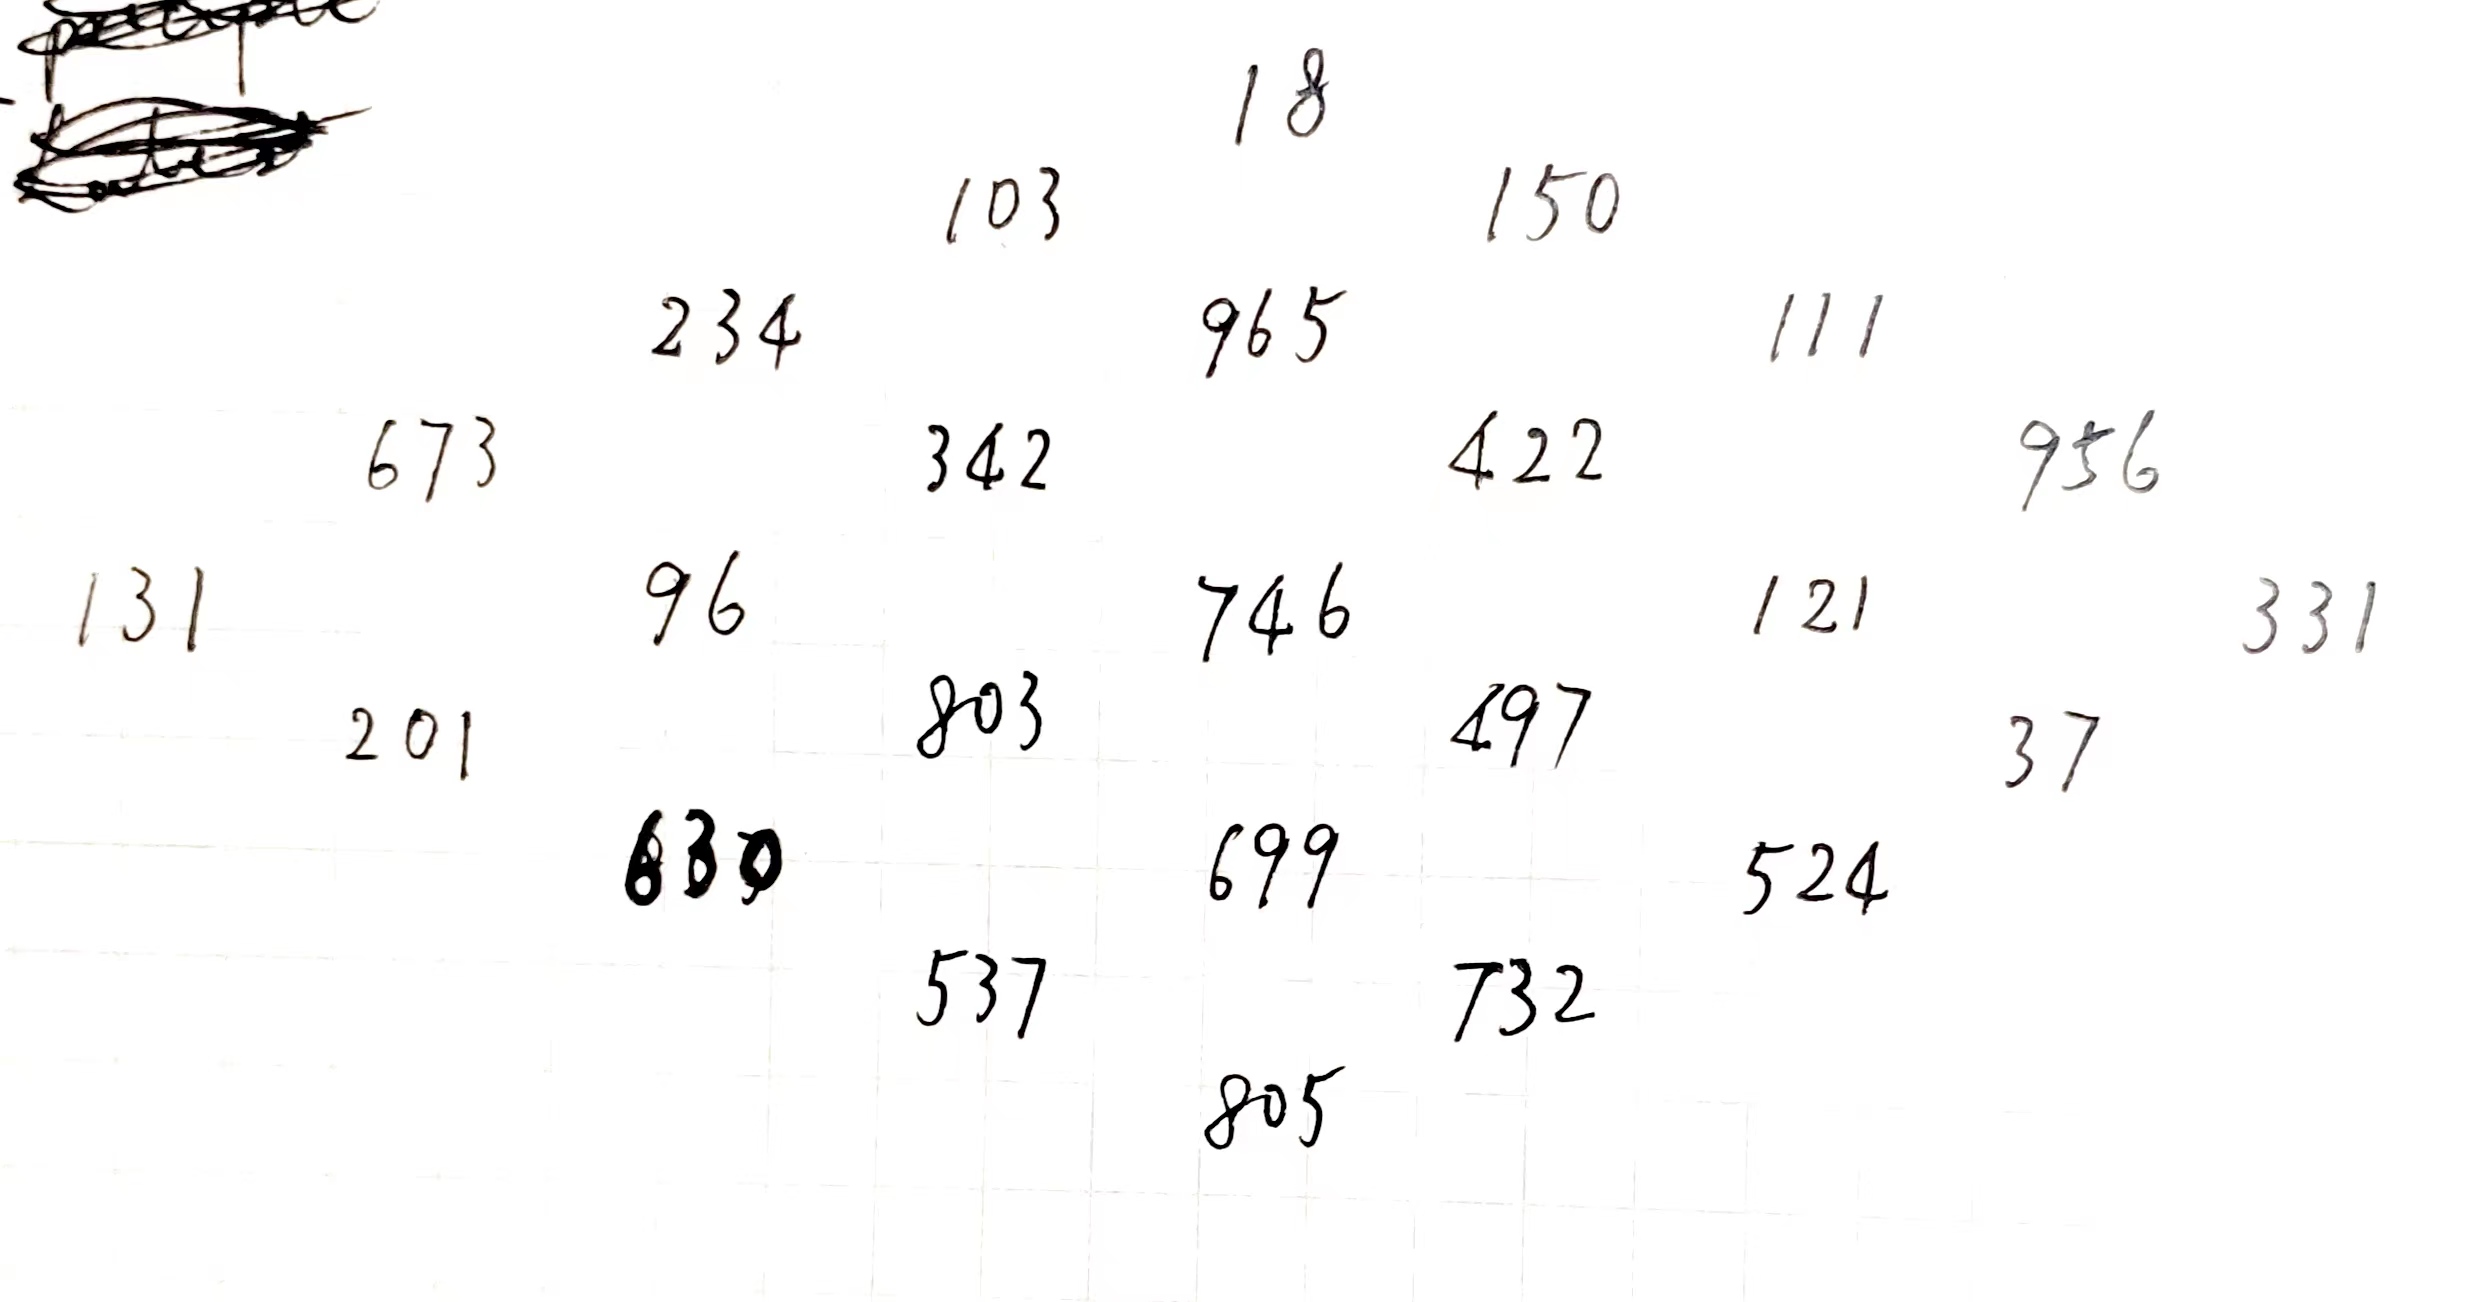 18
103 150
234 965 111
673 342 422 956
131 96 746 121 331
201 803 497 37
630 699 524
537 732
805